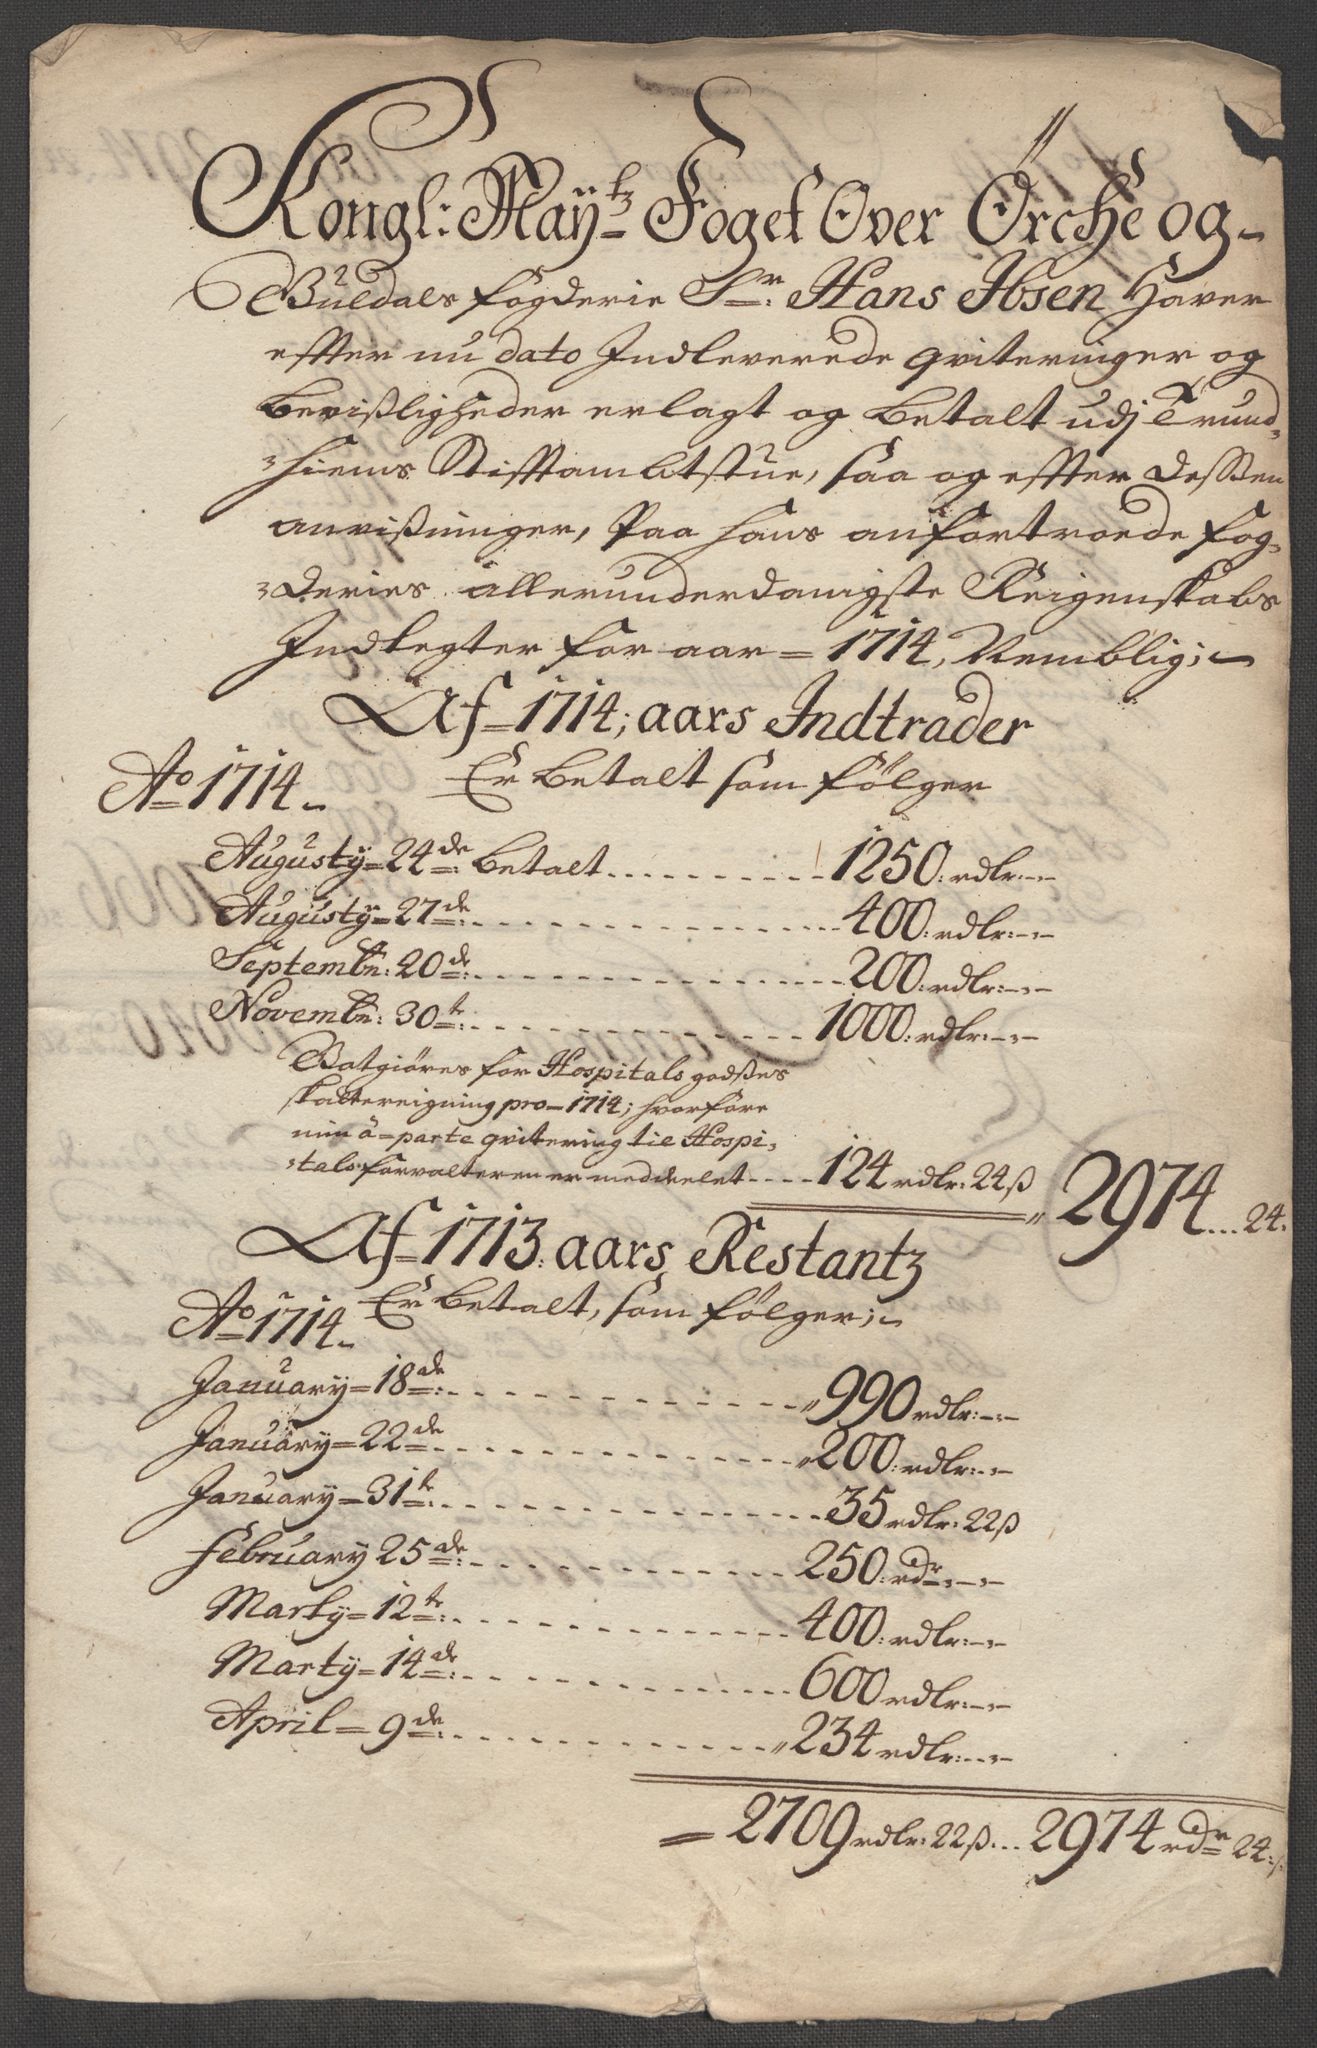 Kongl: Maÿtz Foget Over Örche og
Guldals fogderie Sr: Hans Ibsen Haver
effter nu dato Indleverede qviteringer og
bevißligheder erlagt og betalt udj Trund-
hiems Stifftambtstue, saa og effter desßen
anvißninger, Paa hans anfortroede fog-
deries allerunderdanigste Reigenskabs
Indtegter for aar = 1714, Nemblig;
Af = 1714; aars Indtrader
Er betalt som følger
Ao 1714
Augustÿ = 24de: betalt .......... 1250: rdlr: - -
Augustÿ = 27de: .......... 400: rdlr: - -
Septembr: 20de: .......... 200: rdlr: - -
Novembr: 30te: .......... 1000: rdlr: - -
Gotgiöres for Hospitals godßes
skattereigning pro = 1714; hvorföre
min â = parte qvitering til Hospi-
tals forvalteren er meddelet .... 124 rdlr: 24ß 2974 ... 24.
Af = 1713: aars Restantz
Er betalt, som følger;
Ao 1714
Januarÿ = 18de: .......... 990 rdlr: - -
Januarÿ = 22de .......... 200: rdlr: - -
Januarÿ = 31te: .......... 35 rdlr: 22ß
Februarÿ 25de: .......... 250: rdr - -
Martÿ = 12te: .......... 400: rdlr: - -
Martÿ = 14de: .......... 600 rdlr: - -
April = 9de: .......... 234 rdlr: - -
= 2709 rdlr: 22ß ... 2974 rdr 24:ß